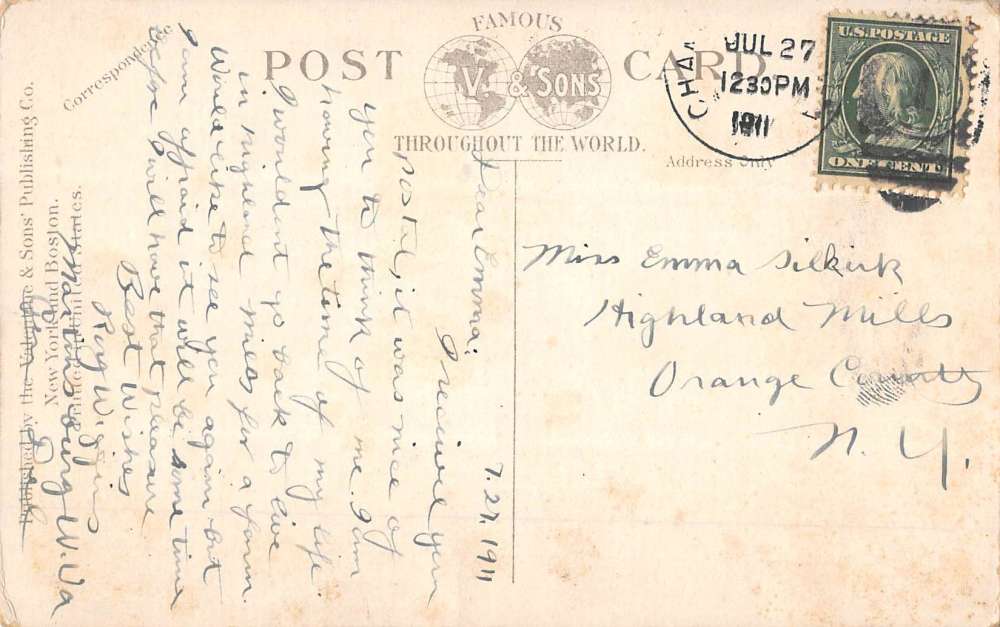 FAMOUS
POST CARD
V. & SONS
THROUGHOUT THE WORLD.
Correspondence
Address Only
CHA
JUL 27
1230PM
1911
U.S. POSTAGE
ONE CENT
7.27.1911
Dear Emma:
I received your
postal, it was nice of
you to think of me. I am
having the time of my life.
I wouldant go back to live
in Highland Mills for a farm.
Would like to see you again but
I am affraid it will be some time
before I will have that pleasure
Best Wishes
Roy
Martinsburg W. Va
Miss Emma Silkirk
Highland Mills
Orange County
N. Y.
Published by the Valentine & Sons' Publishing Co.
New York and Boston.
Printed in United States.